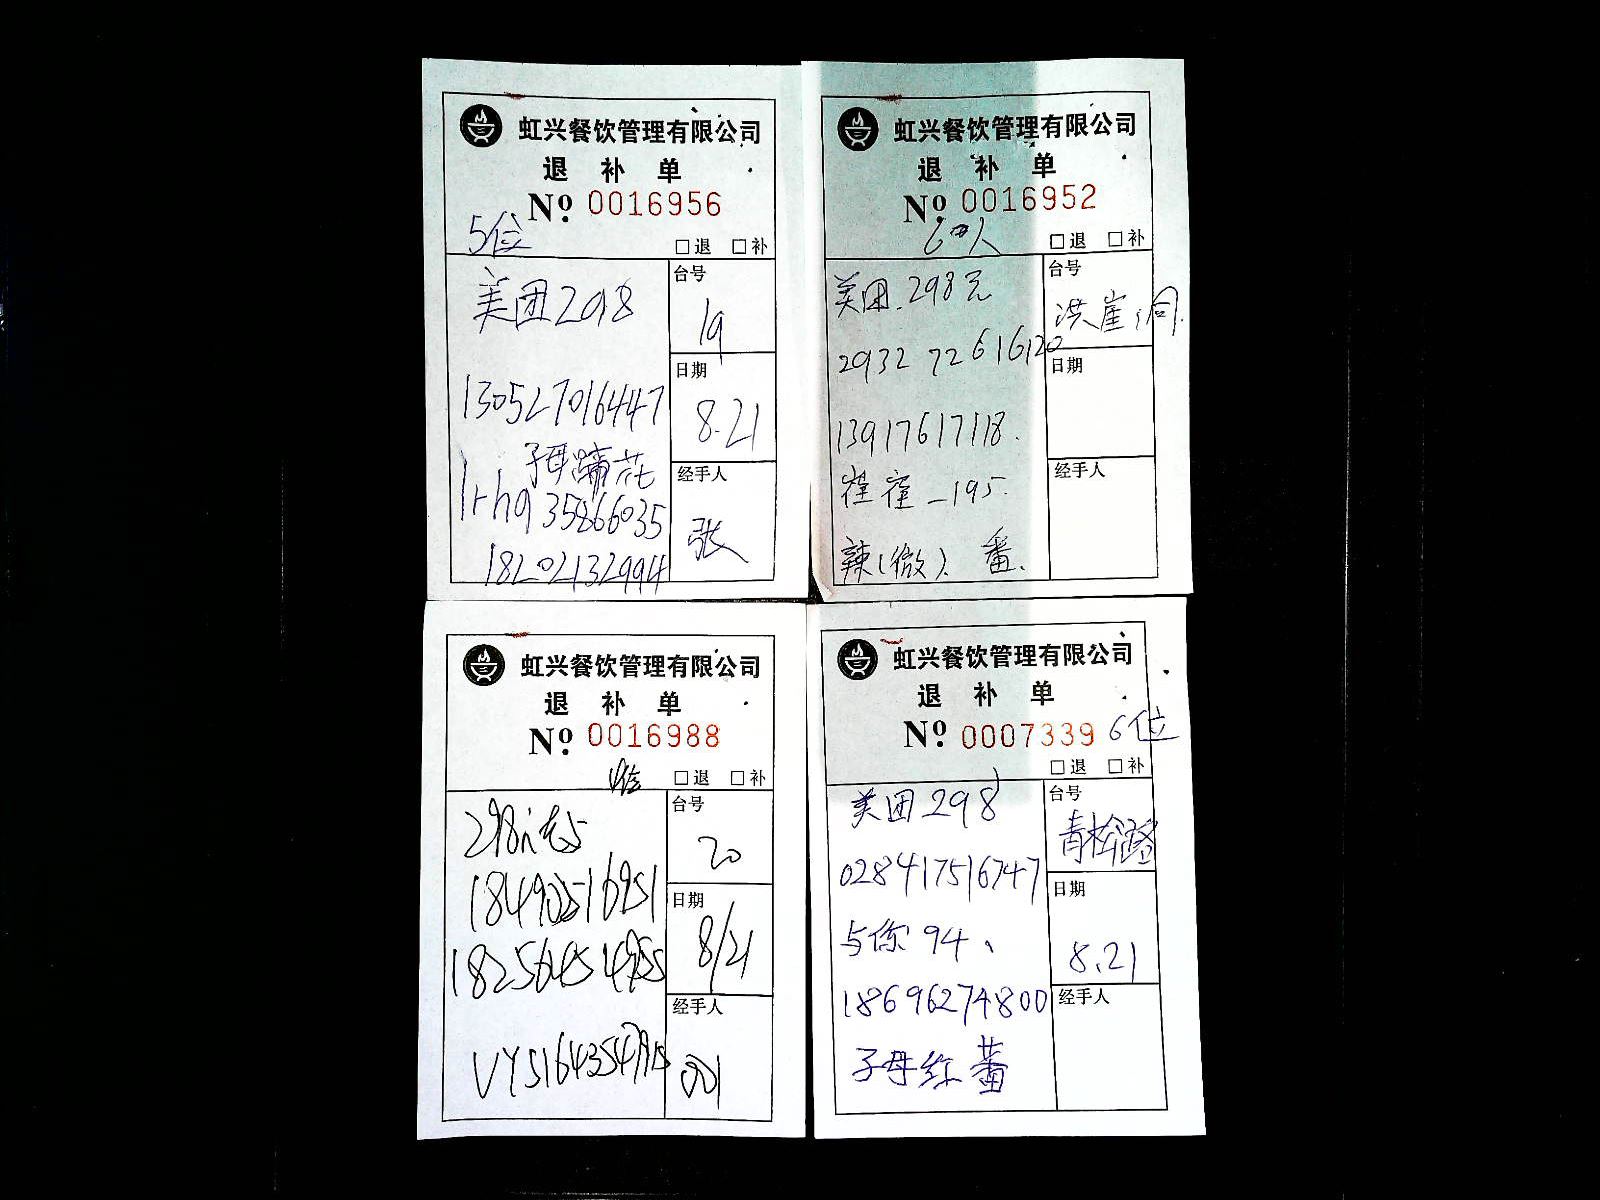 虹兴餐饮管理有限公司
退 补 单
Nº 0016956
5位
□退 □补
美团298
130527016447
子母蹄花
35866035
18202132994
台号
19
日期
8.21
经手人
张
虹兴餐饮管理有限公司
退 补 单
Nº 0016952
6人
□退 □补
美团.298元
2932 72616120
13917617118.
_195.
辣(微). 番.
台号
洪崖洞.
日期
经手人
虹兴餐饮管理有限公司
退 补 单
Nº 0016988
□退 □补
298
台号
20
日期
8/21
经手人
虹兴餐饮管理有限公司
退 补 单
Nº 0007339
6位
□退 □补
美团298
028417516747
与你94、
18696274800
子母 番
台号
青松
日期
8.21
经手人